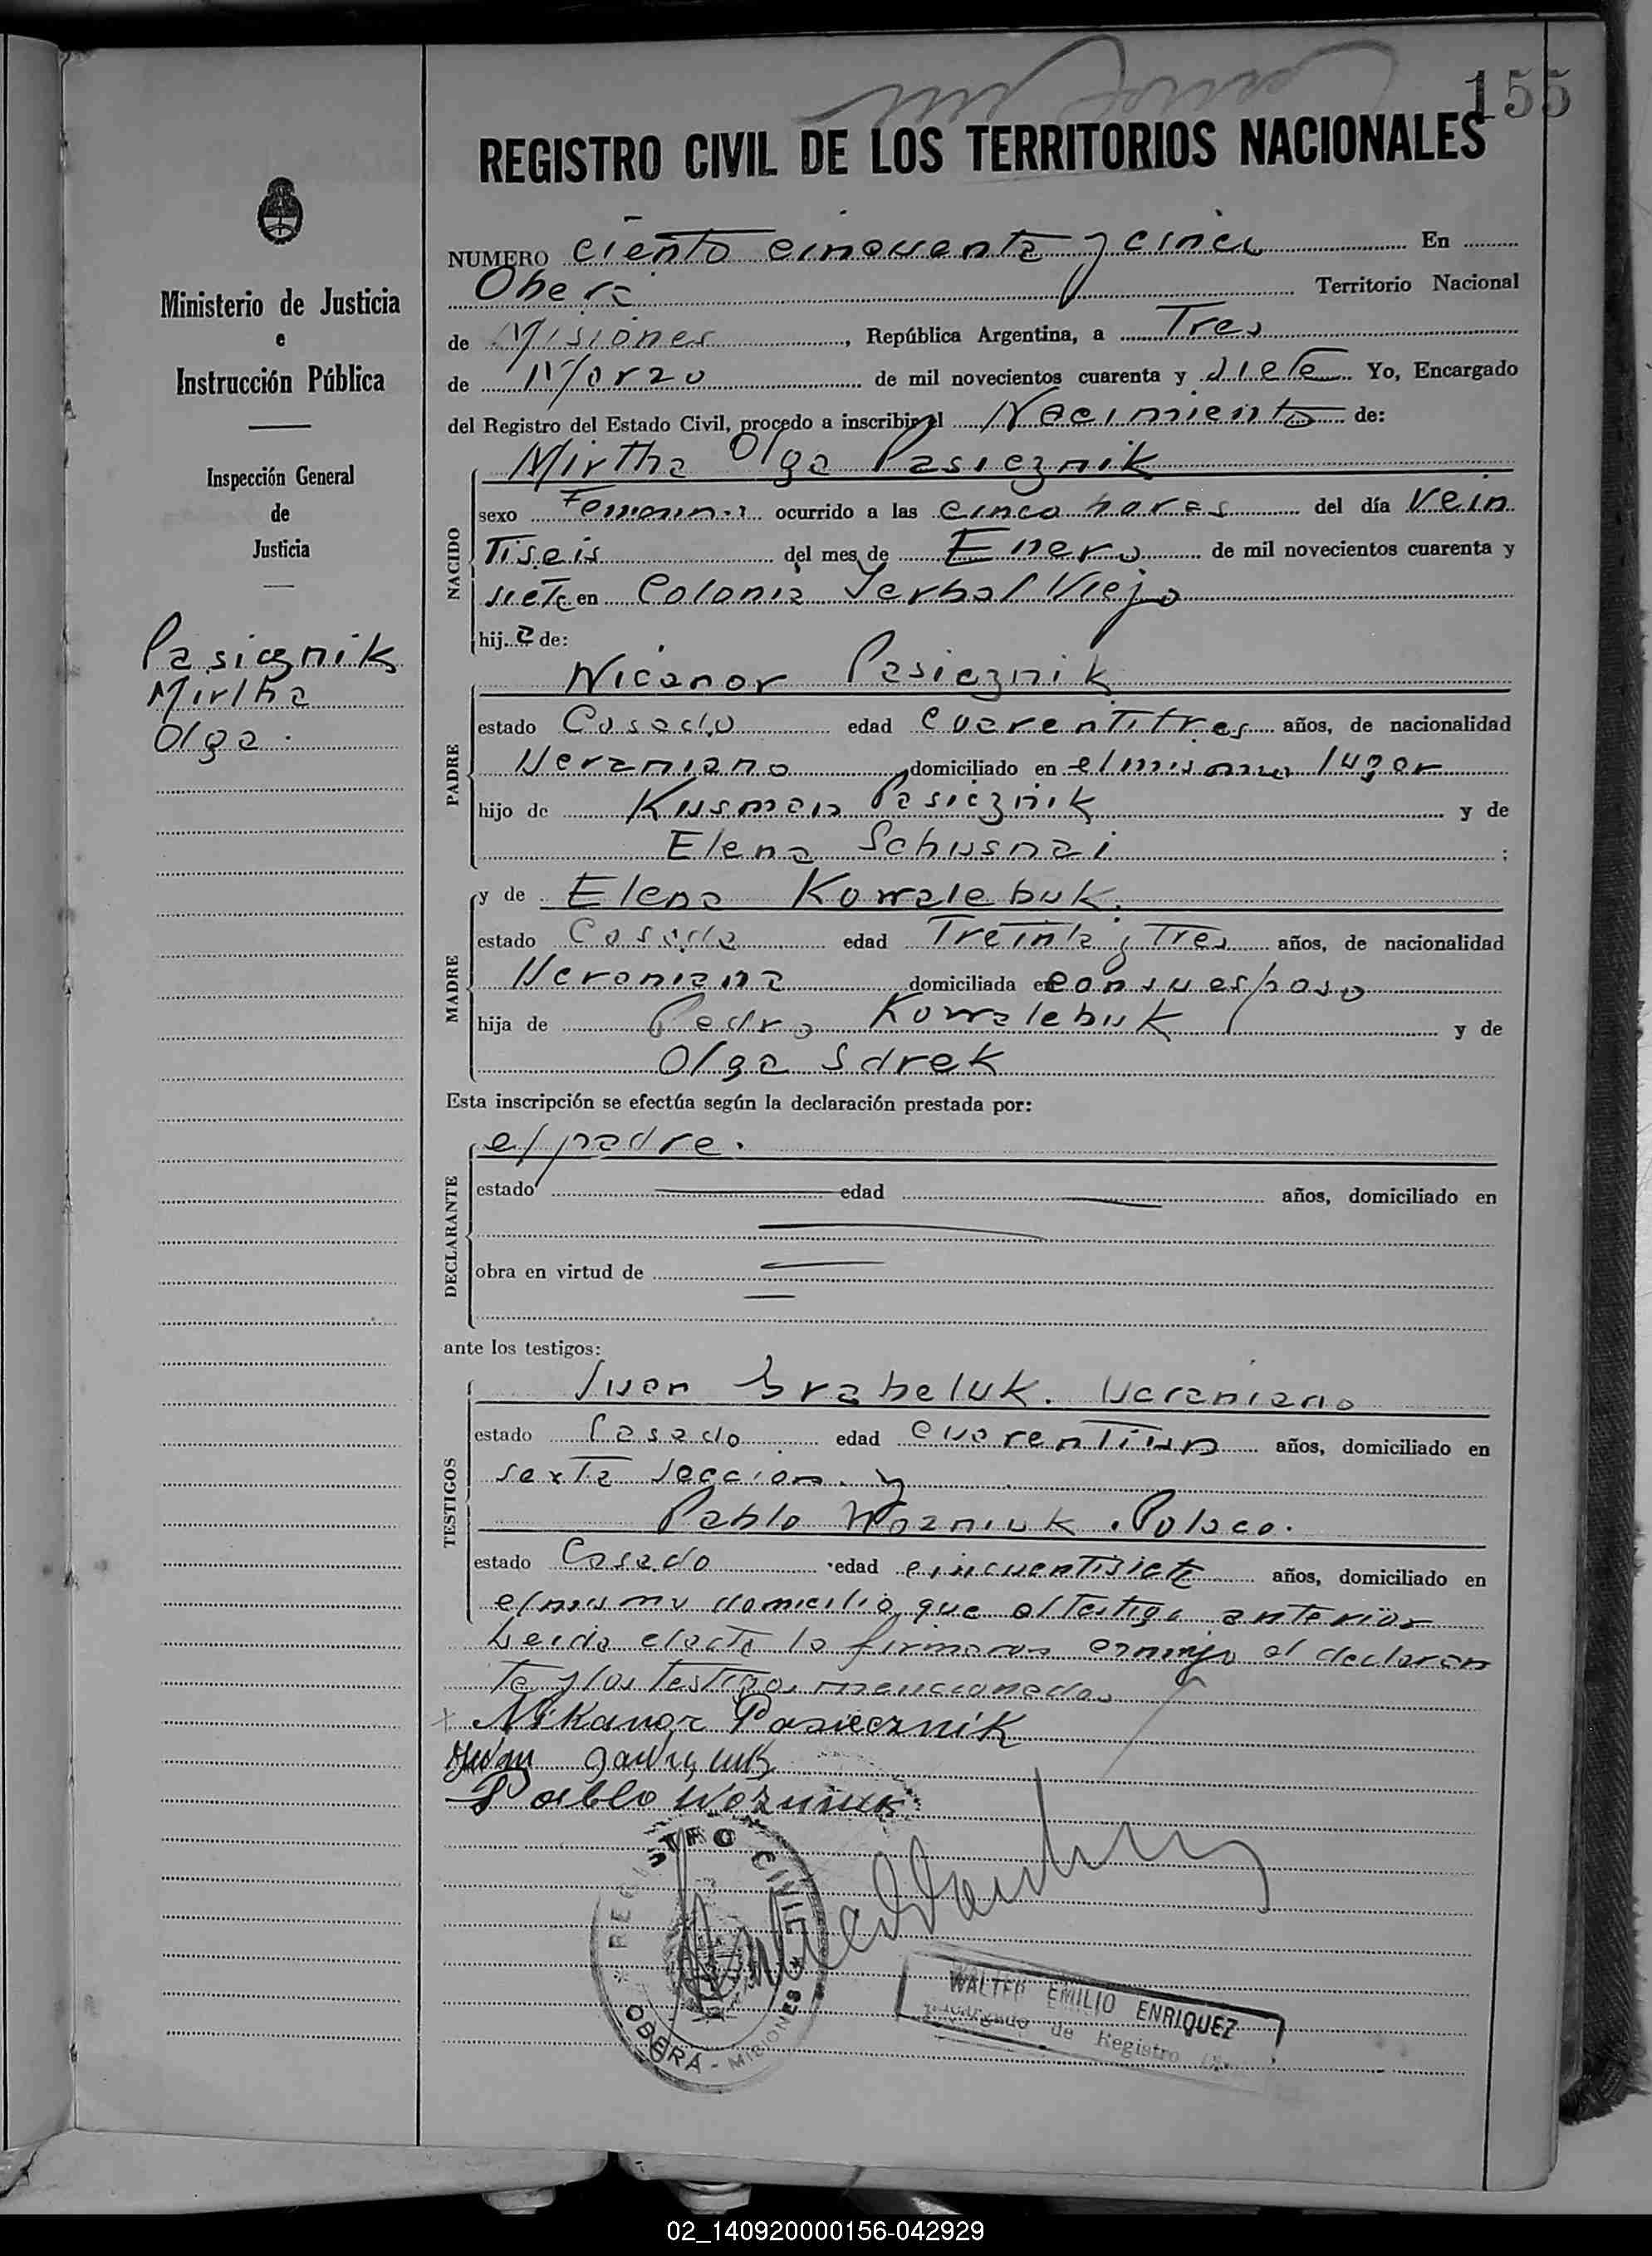 155
REGISTRO CIVIL DE LOS TERRITORIOS NACIONALES
Ministerio de Justicia
e
Instrucción Pública
Inspección General
de
Justicia
Pasieznik
Mirtha
Olga.
NUMERO ciento cincuenta y cinco En
Oberá Territorio Nacional
de Misiones, República Argentina, a Tres
de Marzo de mil novecientos cuarenta y siete Yo, Encargado
del Registro del Estado Civil, procedo a inscribir el Nacimiento de:
NACIDO
Mirtha Olga Pasieznik
sexo Femenino ocurrido a las cinco horas del día vein
tiseis del mes de Enero de mil novecientos cuarenta y
siete en Colonia Yerbal Viejo
hij a de:
PADRE
Nicanor Pasieznik
estado Casado edad cuarentitres años, de nacionalidad
Ucraniano domiciliado en el mismo lugar
hijo de Kusman Pasieznik y de
Elena Schusnai ;
MADRE
y de Elena Kowalebuk.
estado Casada edad Treinta y Tres años, de nacionalidad
Ucraniana domiciliada en con su esposo
hija de Pedro Kowalebuk y de
Olga Sdrek
Esta inscripción se efectúa según la declaración prestada por:
DECLARANTE
el padre.
estado edad años, domiciliado en
obra en virtud de
ante los testigos:
TESTIGOS
Juan Grabeluk. Ucraniano
estado Casado edad cuarentiun años, domiciliado en
sexta seccion. y
Pablo Wozniuk. Polaco.
estado Casado edad cincuentisiete años, domiciliado en
el mismo domicilio que el testigo anterior
Leida el acta la firmaron conmigo el declaran
te y los testigos mencionados
x Nikanor Pasiecznik
Juan
Pablo Wozniuk
REGISTRO CIVIL
OBERÁ - MISIONES
WALTER EMILIO ENRIQUEZ
Encargado de Registro
02_140920000156-042929